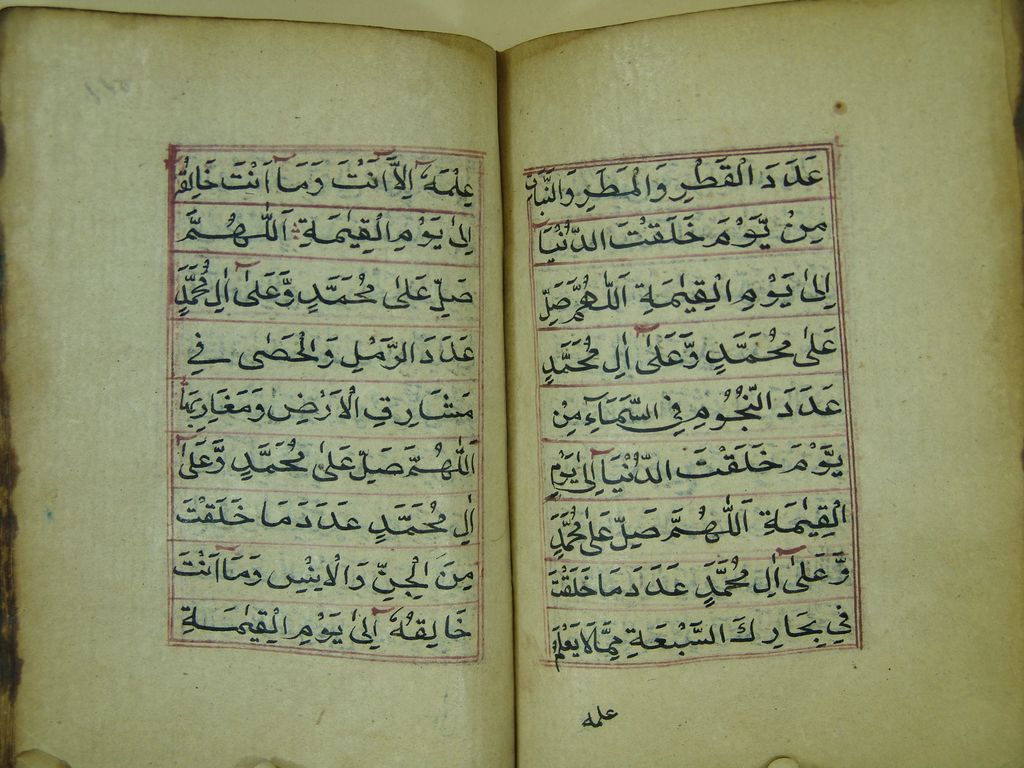 عَدَدَ الْقَطْرِ وَالْمَطَرِ وَالنَّبَاتِ
مِنْ يَّوْمَ خَلَقْتَ الدُّنْيَا
اِلىٰ يَوْمِ الْقِيٰمَةِ اَللّٰهُمَّ صَلِّ
عَلىٰ مُحَمَّدٍ وَّعَلىٰٓ اٰلِ مُحَمَّدٍ
عَدَدَ النُّجُوْمِ فِي السَّمَآءِ مِنْ
يَّوْمَ خَلَقْتَ الدُّنْيَا اِلىٰ يَوْمِ
الْقِيٰمَةِ اَللّٰهُمَّ صَلِّ عَلىٰ مُحَمَّدٍ
وَّعَلىٰٓ اٰلِ مُحَمَّدٍ عَدَدَ مَا خَلَقْتَ
فِي بِحَارِكَ السَّبْعَةِ مِمَّا لَا يَعْلَمُ
علمه
عِلْمَهٗٓ اِلَّآ اَنْتَ وَمَآ اَنْتَ خَالِقُهٗ
اِلىٰ يَوْمِ الْقِيٰمَةِ اَللّٰهُمَّ
صَلِّ عَلىٰ مُحَمَّدٍ وَّعَلىٰٓ اٰلِ مُحَمَّدٍ
عَدَدَ الرَّمْلِ وَالْحَصٰى فِي
مَشَارِقِ الْاَرْضِ وَمَغَارِبِهَا
اَللّٰهُمَّ صَلِّ عَلىٰ مُحَمَّدٍ وَّعَلىٰٓ
اٰلِ مُحَمَّدٍ عَدَدَ مَا خَلَقْتَ
مِنَ الْجِنِّ وَالْاِنْسِ وَمَآ اَنْتَ
خَالِقُهٗٓ اِلىٰ يَوْمِ الْقِيٰمَةِ